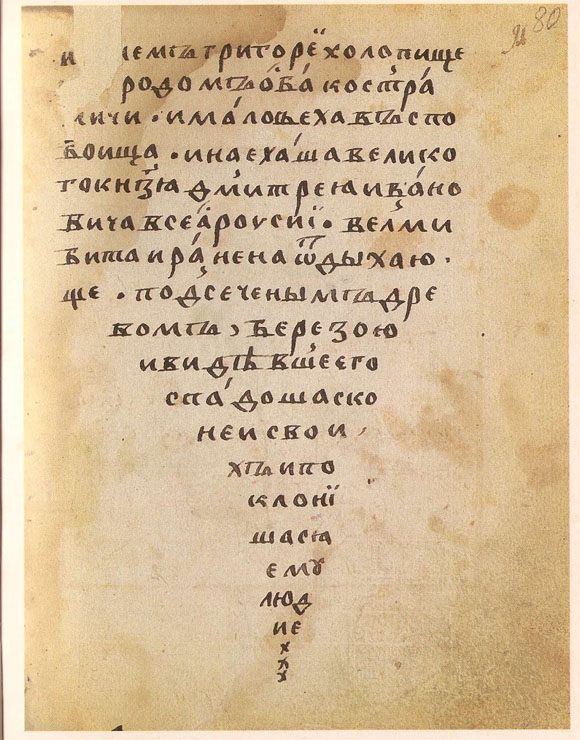 80
и емъ григорїе холопище
родомъ оба костра
личи · и мало ѿехавъ с по
боища · и наехаша велико
го кнѧзѧ дмитрея ивано
вича всеа роусиї · велми
бита и ранена ѿдыхаю
ще · под сеченымъ дре
вомъ, березою
и видѣвше его
спадоша с ко
ней свои
хъ и по
клонї
шасѧ
емꙋ
люд
ие